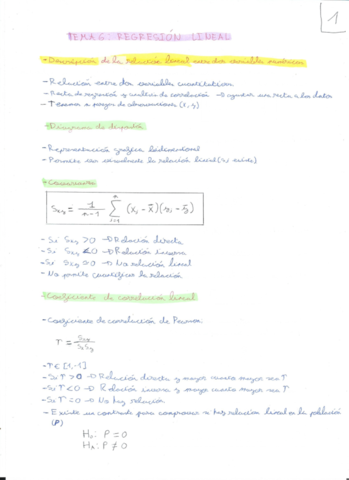 1
TEMA 6: REGRESIÓN LINEAL
- Descripción de la relación lineal entre dos variables numéricas
- Relación entre dos variables cuantitativas
- Recta de regresión y análisis de correlación → ajustar una recta a los datos
- Tenemos n parejas de observaciones (x, y)
- Diagrama de dispersión
- Representación gráfica bidimensional
- Permite ver visualmente la relación lineal (si existe)
- Covarianza
Sxy = 1/n-1 Σ i=1 n (xi - x̄)(yi - ȳ)
- Si Sxy > 0 → Relación directa
- Si Sxy < 0 → Relación inversa
- Si Sxy = 0 → No relación lineal
- No permite cuantificar la relación
- Coeficiente de correlación lineal
- Coeficiente de correlación de Pearson
r = Sxy / Sx Sy
- r ∈ [1,-1]
- Si r > 0 → Relación directa y mayor cuanto mayor sea r
- Si r < 0 → Relación inversa y mayor cuanto mayor sea r
- Si r = 0 → No hay relación
- Existe un contraste para comprobar si hay relación lineal en la población
(ρ)
H₀: ρ = 0
Hₐ: ρ ≠ 0